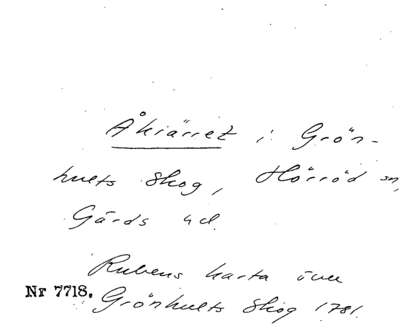 Åkiärret i Grön-
hults Skog, Hörröd sn,
Gärds hd.
Rubens karta över
Nr 7718. Grönhults Skog 1781.